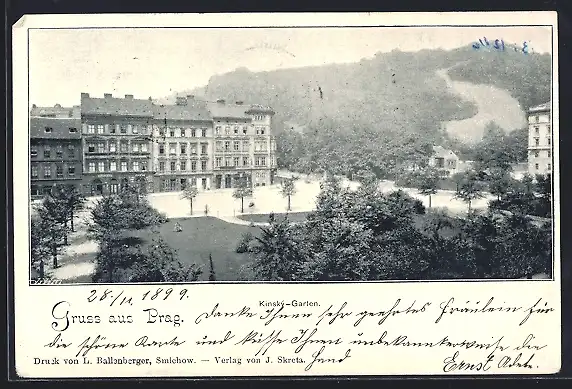 28./11 1899.
Kinský-Garten.
Gruss aus Prag. Danke Ihnen sehr geehrtes Fräulein für
die schöne Karte und küsse Ihnen unbekannterweise die
Druck von L. Ballenberger, Smichow. — Verlag von J. Skreta. Hand Ernst